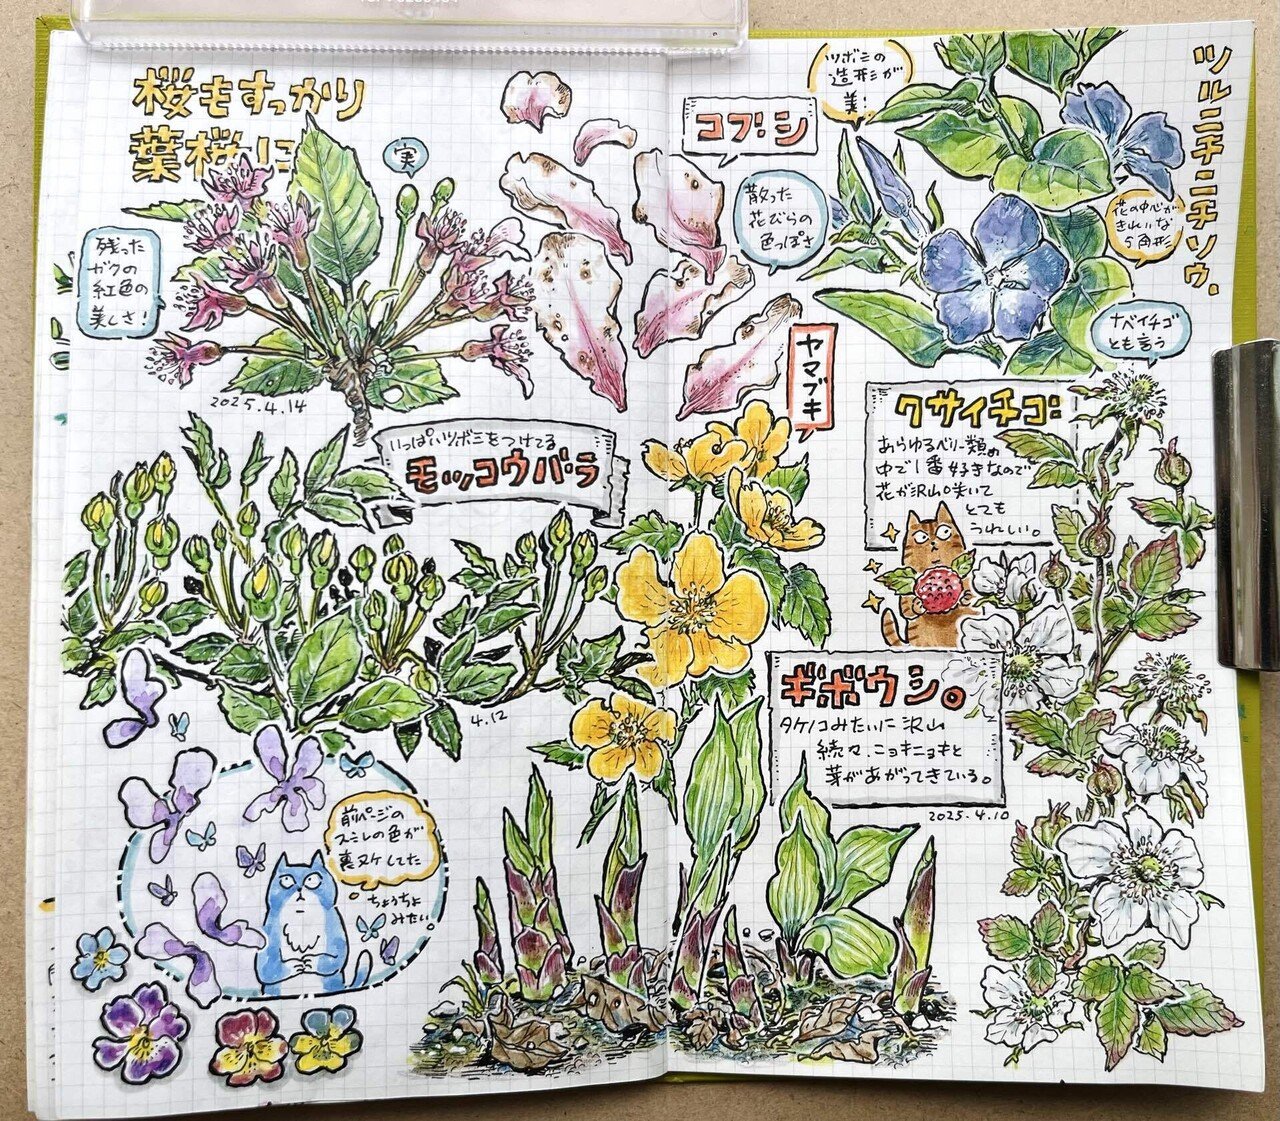 桜もすっかり
葉桜に
実
残った
ガクの
紅色の
美しさ!
2025.4.14
コブシ
散った
花びらの
色っぽさ
ツボミの
造形が
美!
ツルニチニチソウ.
花の中心が
きれいな
5角形
ナベイチゴ
とも言う
ヤマブキ
いっぱいツボミをつけてる
モッコウバラ
4.12
クサイチゴ:
あらゆるベリー類の
中で1番好きなので
花が沢山咲いて
とても
うれしい。
ギボウシ。
タケノコみたいに沢山
続々、ニョキニョキと
芽があがってきている。
2025.4.10
前ページの
スミレの色が
裏ヌケしてた
ちょうちょ
みたい。